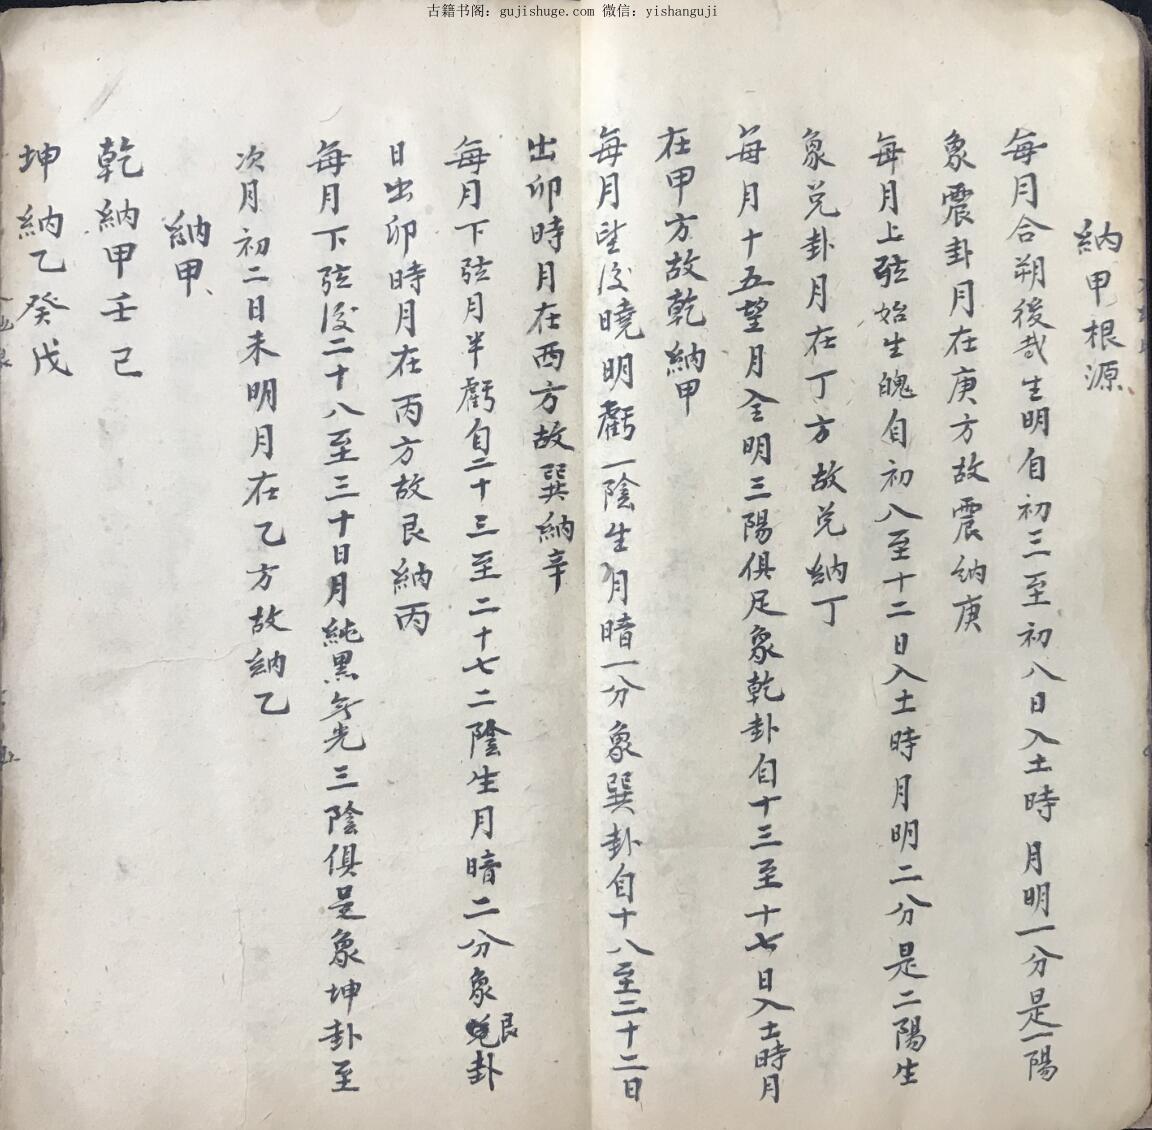 古籍书阁：gujishuge.com 微信：yishanguji
納甲根源
每月合朔後哉生明自初三至初八日入土時月明一分是一陽
象震卦月在庚方故震納庚
每月上弦始生魄自初八至十二日入土時月明二分是二陽生
象兑卦月在丁方故兑納丁
每月十五望月全明三陽俱足象乾卦自十三至十七日入土時月
在甲方故乾納甲
每月望後曉明虧一陰生月暗一分象巽卦自十八至二十二日
出卯時月在西方故巽納辛
每月下弦月半虧自二十三至二十七二陰生月暗二分象艮卦
日出卯時月在丙方故艮納丙
每月下弦後二十八至三十日月純黑無光三陰俱是象坤卦至
次月初二日未明月在乙方故納乙
納甲
乾納甲壬己
坤納乙癸戊